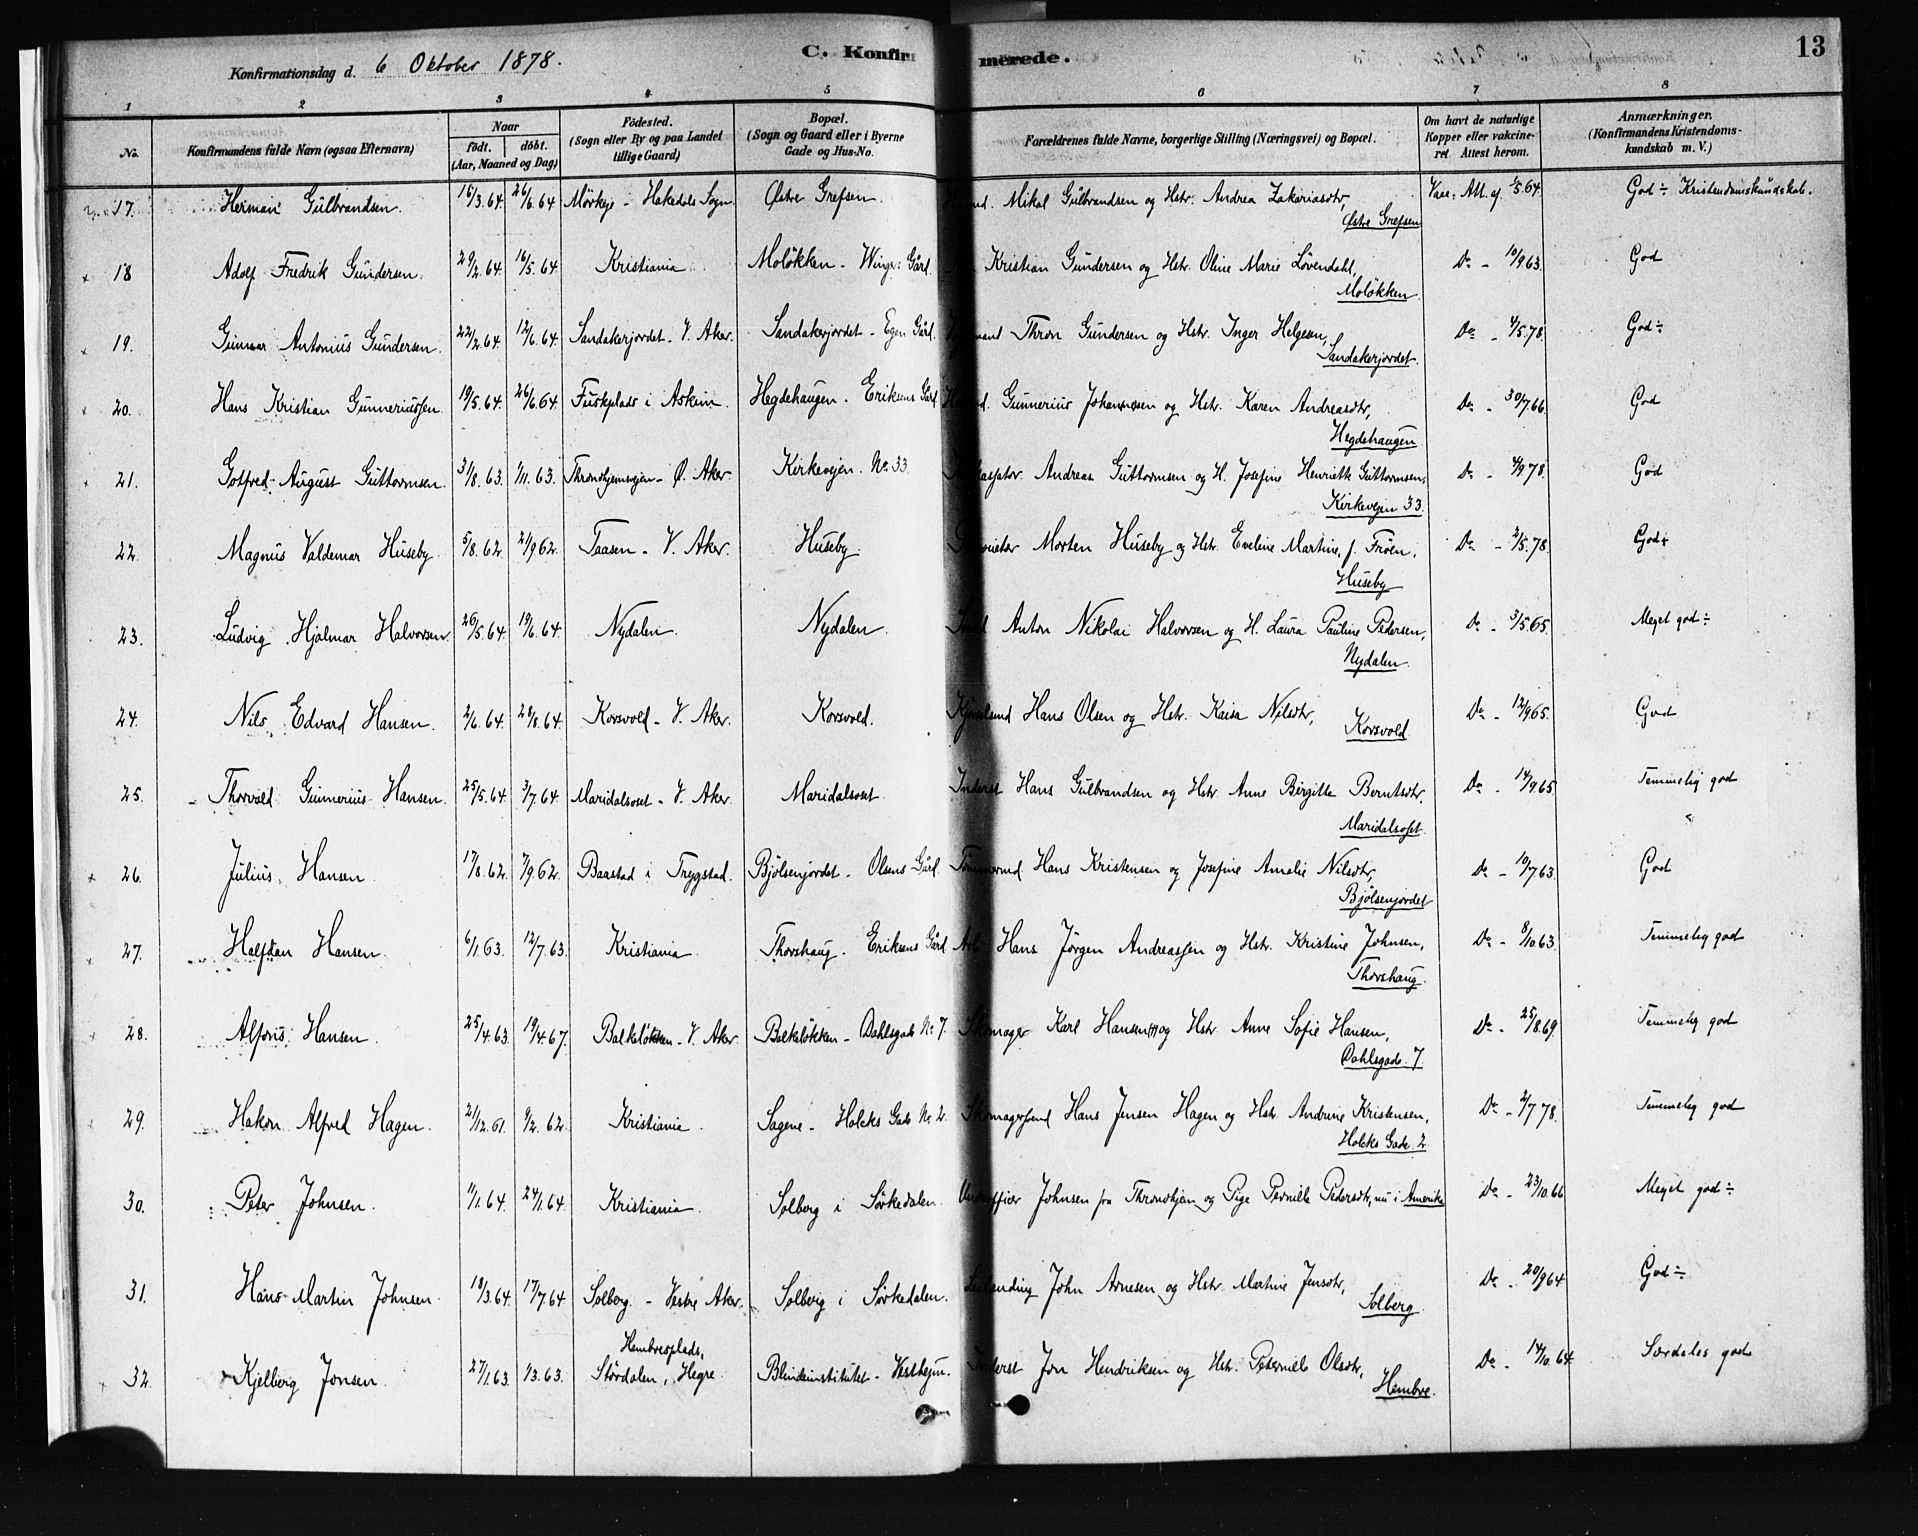 Konfirmationsdag d. 6 Oktober 1878. C. Konfir merede. 13
1 2 3 4 5 6 7 8
No. Konfirmandens fulde Navn (ogsaa Efternavn) Naar födt. döbt. (Aar, Maaned og Dag) Födested. (Sogn eller By og paa Landet tillige Gaard) Bopæl. (Sogn og Gaard eller i Byerne Gade og Hus-No. Forældrenes fulde Navne, borgerlige Stilling (Næringsvei) og Bopæl. Om havt de naturlige Kopper eller vakcineret Attest herom. Anmærkninger. (Konfirmandens Kristendomskundskab m. V.)
17. Herman Gulbrandsen. 16/3.64. 26/6.64 Mörkeje - Hakedals Sogn. Østre Grefsen. Mikal Gulbrandsen og Hstr. Andrea Zakariasdtr, Vacc. Att. af 1/5.64. God ÷ Kristendomskundskab.
Østre Grefsen
18 Adolf Fredrik Gundersen. 29/2.64. 16/5.64 Kristiania Moløkken - Gård. Kristian Gundersen og Hstr. Oline Marie Lövendahl, Do - 10/9.63. God
Moløkken.
19. Gunnar Antonius Gundersen. 22/2.64. 12/6.64. Sandakerjordet - V. Aker. Sandakerjordet - Egen Gård. Thron Gundersen og Hstr. Inger Helgesen, Do - 4/5.78. God ÷
Sandakerjordet.
20. Hans Kristian Gunneriussen. 19/5.64. 26/6.64 i Askim. Hegdehaugen - Eriksens Gård Gunnerius Johannesen og Hstr. Karen Andreasdtr, Do - 30/7.66. God
Hegdehaugen
21. Gotfred August Guttormsen. 31/8.63. 1/11.63. Throndhjemsvejen - Ø. Aker. Kirkevejen. No. 33. Andreas Guttormsen og H. Josefine Henriette Guttormsen, Do - 4/9.78. God
Kirkevejen 33.
22. Magnus Valdemar Huseby. 5/8.62. 21/9.62. Taasen - V. Aker. Huseby. Morten Huseby og Hstr. Eveline Martine, f. Fröen, Do - 2/5.78. God ÷
Huseby
23. Ludvig Hjalmar Halvorsen. 26/5.64. 19/6.64. Nydalen. Nydalen. Smed Anton Nikolai Halvorsen og H. Laura Pauline Pedersen, Do - 3/5.65. Meget god ÷
Nydalen.
24. Nils Edvard Hansen. 2/6.64. 28/8.64. Korsvold - V. Aker. Korsvold. Hans Olsen og Hstr. Kaisa Nilsdtr, Do - 12/9.65. God
Korsvold
25. Thorvald Gunnerius Hansen. 25/5.64. 3/7.64. Maridalsoset - V. Aker. Maridalsoset Inderst Hans Gulbrandsen og Hstr. Anne Birgitte Berntsdtr, Do - 14/9.65 Temmelig god
Maridalsoset.
26. Julius Hansen. 17/8.62. 7/9.62. Baastad i Trygstad. Bjölsenjordet - Olsens Gård. Tömmermd Hans Kristensen og Josefine Amalie Nilsdtr, Do - 10/7.63. God
Bjölsenjordet
27. Halfdan Hansen. 6/1.63. 12/7.63. Kristiania. Thorshaug. Eriksens Gård. Arb. Hans Jörgen Andreassen og Hstr. Kristine Johnsen, Do - 8/10.63 Temmelig god
Thorshaug.
28. Alfons Hansen. 25/4.63. 19/4.67. Balkeløkken - V. Aker. Balkeløkken - Dahlsgade No. 7. Skomager Karl Hansen og Hstr. Anne Sofie Hansen, Do - 25/8.69. Temmelig god
Dahlsgade. 7.
29. Hakon Alfred Hagen. 21/12.61. 9/2.62. Kristiania. Sagene - Holcks Gade No. 2. Skomagersvend Hans Jensen Hagen og Hstr. Andrine Kristensen, Do - 2/7.78. Temmelig god
Holcks Gade. 2.
30. Peter Johnsen. 11/1.64. 24/1.64. Kristiania. Solberg i Sörkedalen. Underofficer Johnsen fra Throndhjem og Pige Pernille Pedersdtr, nu i Amerika Do - 23/10.66 Meget god ÷
31. Hans Martin Johnsen. 18/3.64. 17/7.64 Solberg - Vestre Aker. Solberg i Sörkedalen. Leilending John Arnesen og Hstr. Martine Jensdtr, Do - 20/9.64 God ÷
Solberg.
Hembresplads,
32. Kjelberg Jonsen. 27/1.63. 1/3.63. Störдalen, Hegre. Blindeinstitutet - Inderst Jon Hendriksen og Hstr. Peternille Olsdtr, Do - 14/10.64. Særdeles god
Hembre.